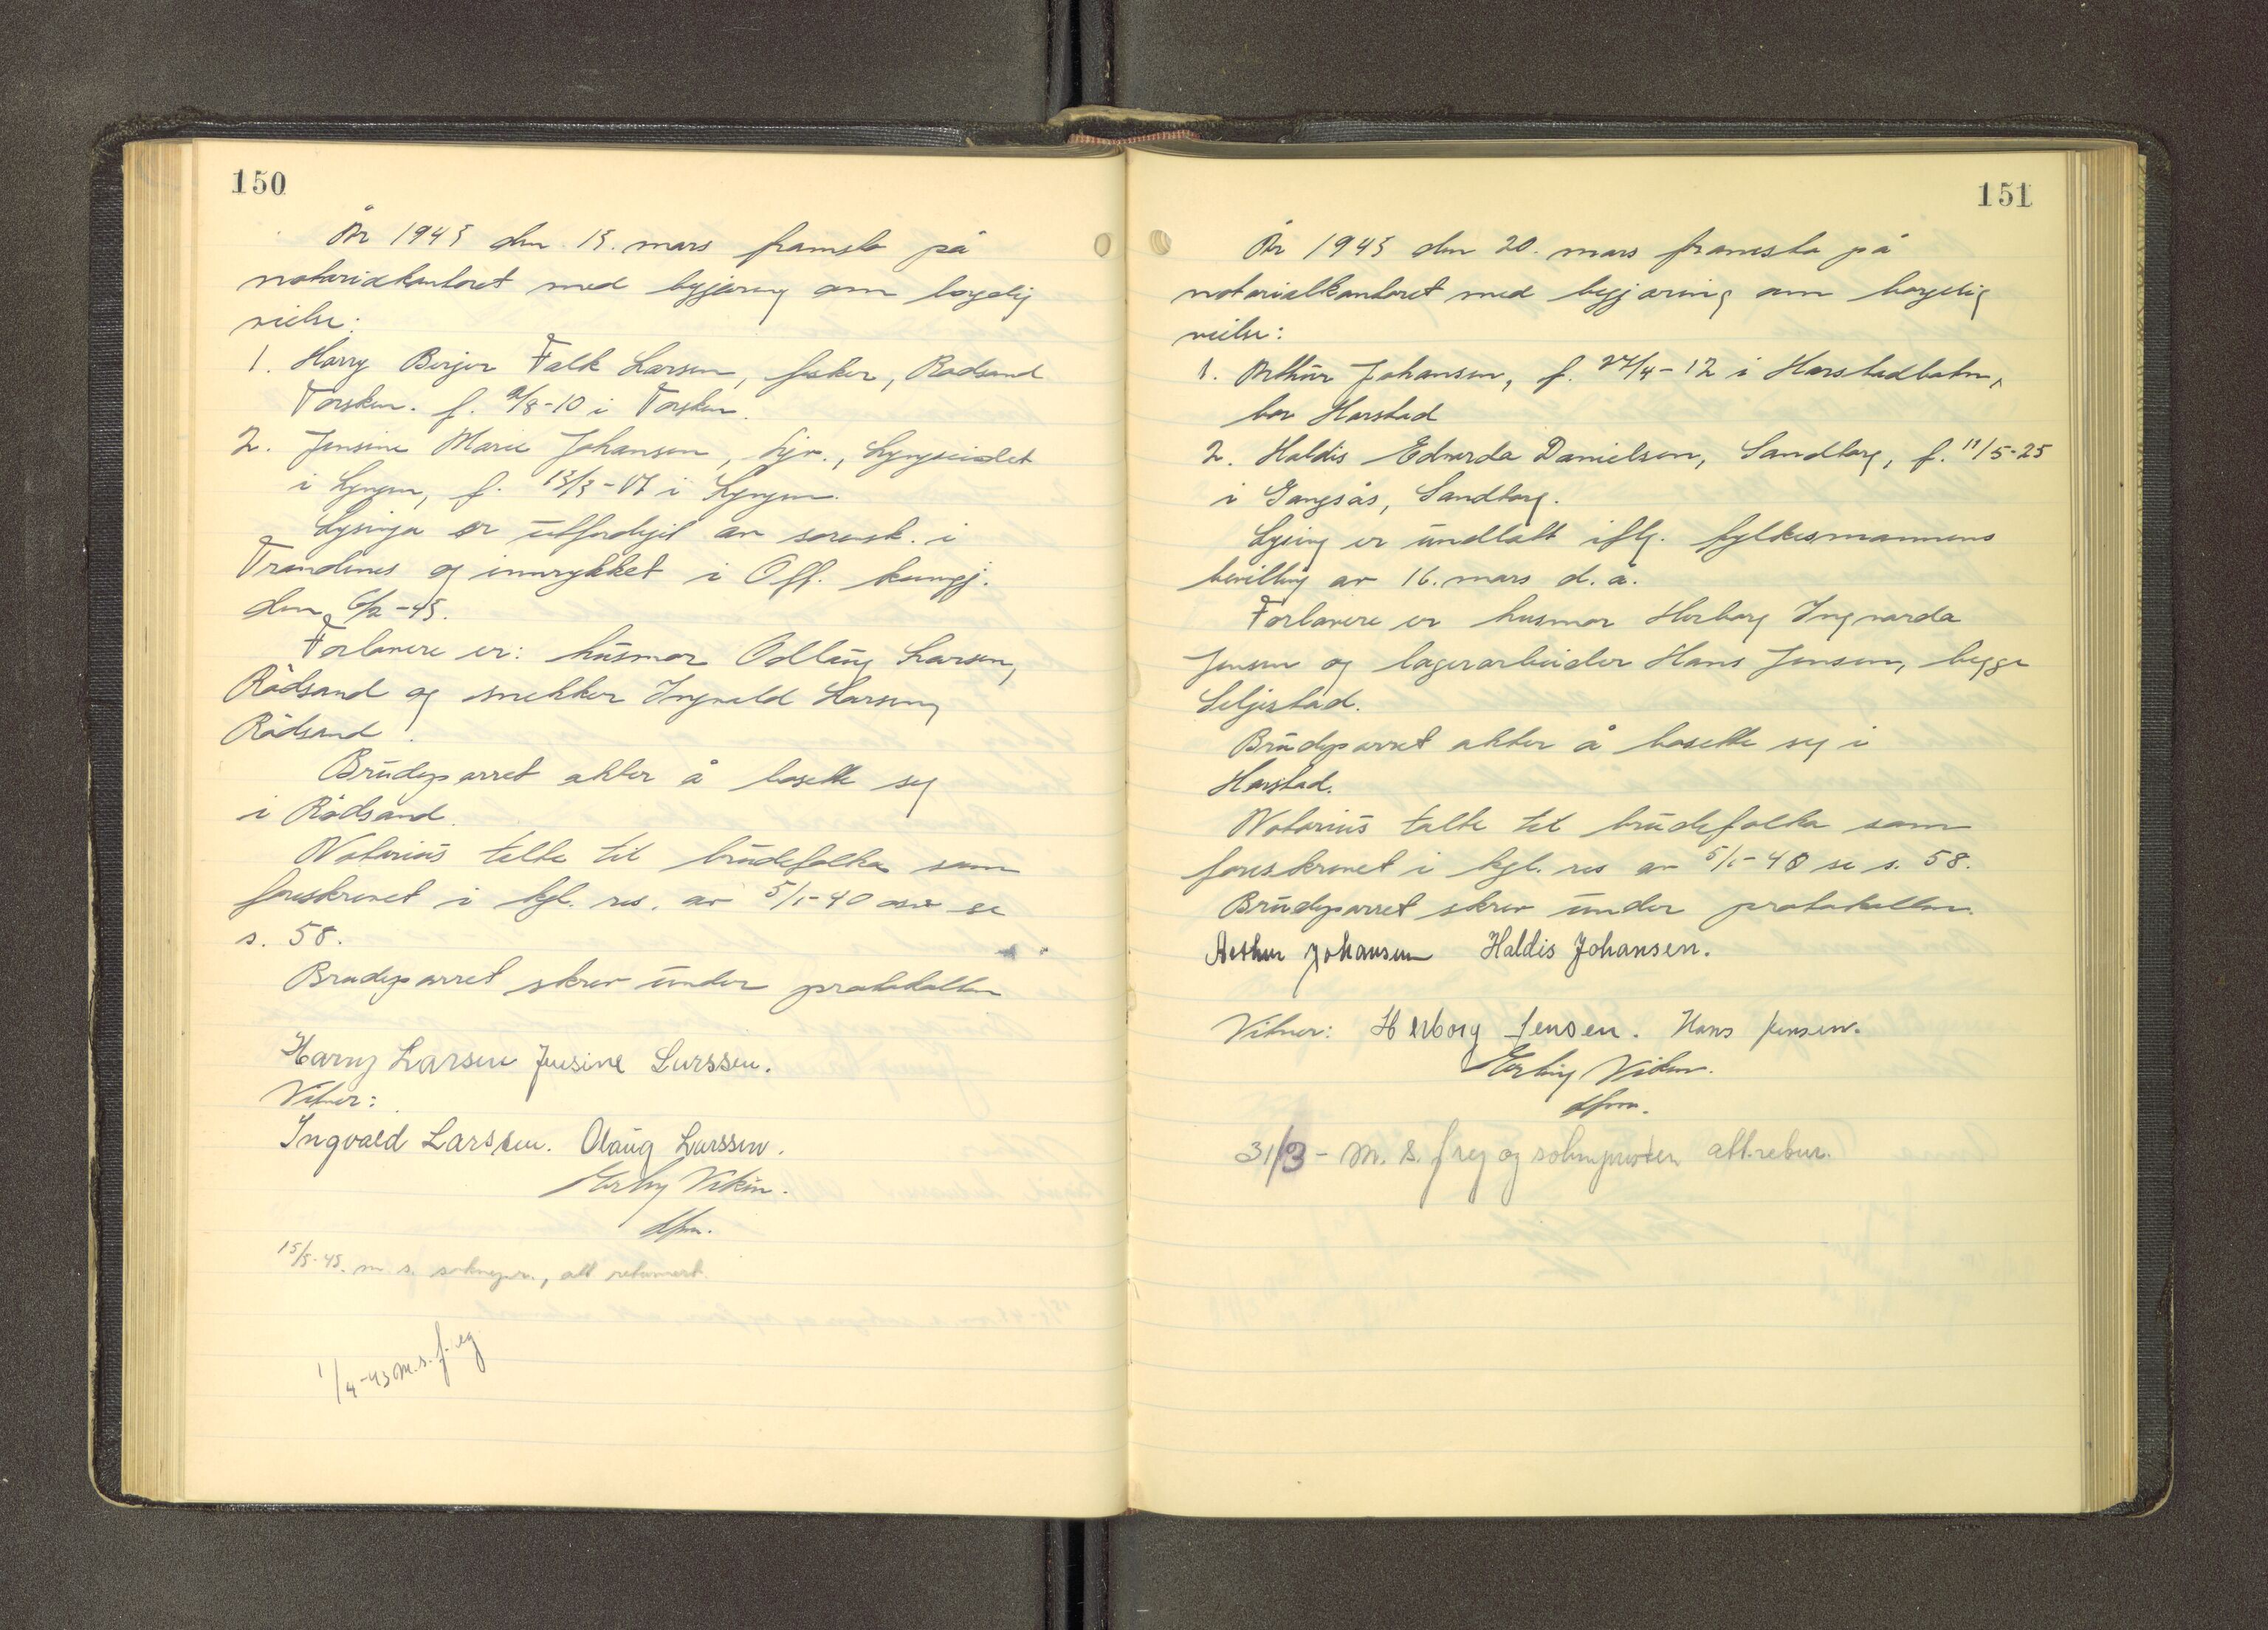 150
År 1943 den 15. mars framsto på
notarialkontoret med begjæring om borgelig
vielse:
1. Harry Berger Falk Larsen, fisker, Rødsand
Torsken. f. 9/8-10 i Torsken.
2. Jensine Marie Johansen, hjv., Lyngseidet
i Lyngen, f. 13/3-17 i Lyngen.
Lysinga er utferdiget av sorensk. i
Trondenes og innrykket i Off. kunngj.
den 6/2-43.
Forlovere er: husmor Oddlaug Larsen,
Rødsand og snekker Ingvald Larsen,
Rødsand.
Brudeparret akter å bosette seg
i Rødsand.
Notarius talte til brudefolka som
foreskrevet i kgl. res. av 5/1-40 se
s. 58.
Brudeparret skrev under protokollen
Harry Larsen Jensine Larssen.
Vitner:
Ingvald Larssen. Olaug Larssen.
Erling Viken.
dfm.
15/5-43. m. s. soknepr., att returnert.
1/4-43 m.s. f. reg
151
År 1943 den 20. mars framsto på
notarialkontoret med begjæring om borgelig
vielse:
1. Arthur Johansen, f. 27/4-12 i Harstadbotn,
bor Harstad
2. Haldis Edvarda Danielsen, Sandtorg, f. 11/5-25
i Gangsås, Sandtorg.
Lysing er undlatt iflg. fylkesmannens
bevilling av 16. mars d. å.
Forlovere er husmor Herborg Ingvarda
Jensen og lagerarbeider Hans Jensen, begge
Seljestad.
Brudeparret akter å bosette seg i
Harstad.
Notarius talte til brudefolka som
foreskrevet i kgl. res av 5/1-40 se s. 58.
Brudeparret skrev under protokollen.
Arthur Johansen Haldis Johansen.
Vitner: Herborg Jensen. Hans Jensen.
Erling Viken.
dfm.
31/3 - m. s. f reg og sokneprosten att. retur.